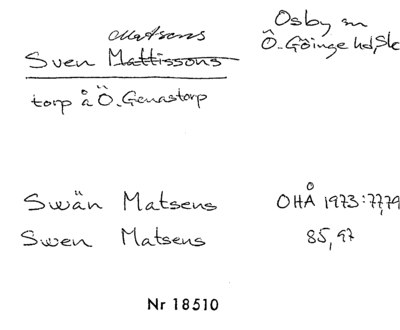 Matsens
Sven Mattissons
torp å Ö. Genastorp
Osby sn
Ö. Göinge hd, Sk
Swän Matsens OHÅ 1973:77,79
Swen Matsens 85, 97
Nr 18510